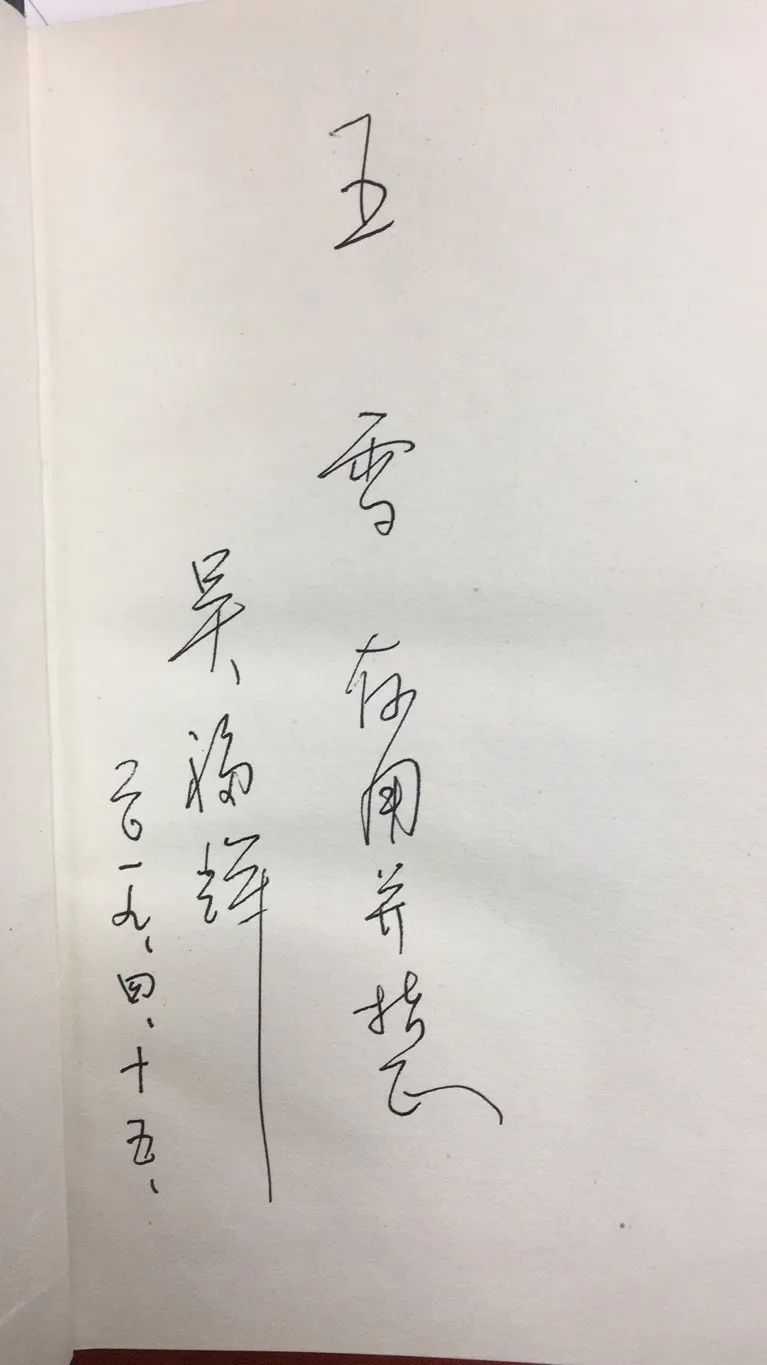 王雪存用并指正
吴福辉
二〇一九、四、十五、